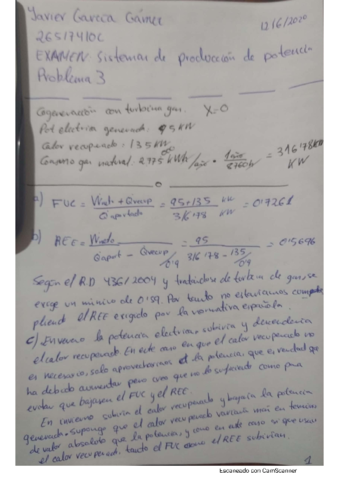 Javier García Gámez 12/6/2020
26517410C
EXAMEN Sistemas de producción de potencia
Problema 3
Cogeneración con turbina gas. X=0
Pot eléctrica generada: 95 KW
Calor recuperado = 135 KW
Consumo gas natural: KWh/año · 1año/8760h = 316'78 KW
a) FUE = = 95+135 / 316'78 = 0'7261
b) REE = = 95 / 316'78 - 135/0'9 = 0'5696
Según el RD 436/2004 y tratándose de turbina de gas, se
exige un mínimo de 0'59. Por tanto no estaríamos
el REE exigido por la normativa española.
c) En verano la potencia eléctrica subiría y
el calor recuperado. En este caso en que el calor recuperado no
es necesario, solo aprovecharíamos la potencia, que es verdad que
ha debido aumentar pero creo que no lo suficiente como para
evitar que bajasen el FUE y el REE.
En invierno subiría el calor recuperado y bajaría la potencia
generada. Supongo que el calor recuperado variaría más en términos
de valor absoluto que la potencia, y como en este caso si que usamos
el calor recuperado, tanto el FUE como el REE subirían.
1
Escaneado con CamScanner